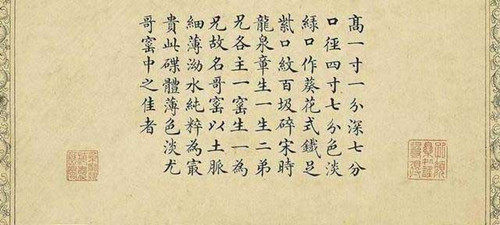 高一寸一分深七分
口徑四寸七分色淡
綠口作葵花式鐵足
紫口紋百圾碎宋時
龍泉章生一生二弟
兄各主一窰生一為
兄故名哥窰以土脈
細薄泑水純粹為㝡
貴此碟體薄色淡尤
哥窑中之佳者